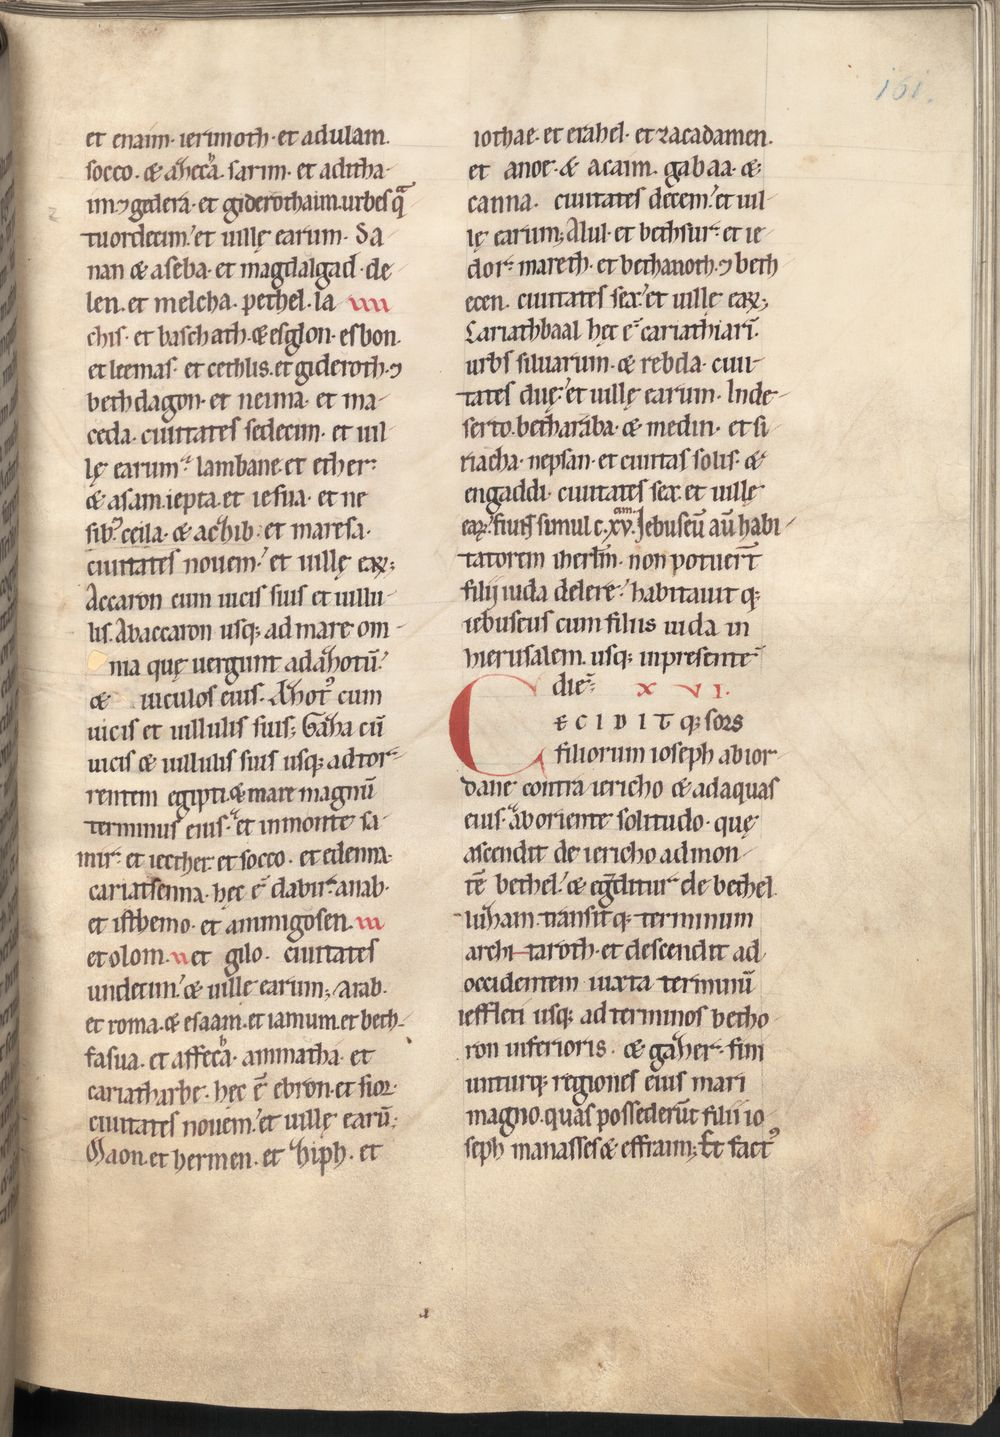 161.
et enaim· ierimoth· et adulam.
socco. & ahecca. sarim. et aditha-
im ⁊ gedera· et giderothaim. urbes qua
tuordecim. et uillę earum· Sa-
nan & aseba· et magdalgad· de-
len. et melcha. pethel. la IIII
chis· et baschath. & esglon· esbon.
et leemas· et cethlis. et gideroth· ⁊
bethdagon· et neima· et ma-
ceda· ciuitates sedecim· et uil-
lę earum· lambane et ether·
& asam. iepta. et iesua· et ne
sib. ceila· & achib· et maresa·
ciuitates nouem. et uillę eaꝝ;
Accaron cum uicis suis et uillu-
lis. Abaccaron usq; ad mare om-
ma quę uergunt ad ahotū.
& uiculos eius. Ahot᷒ cum
uicis et uillulis suis; Gaha cū
uicis & uillulis suis usq; ad tor-
rentem egipti. & mare magnū
terminus eius· et in monte sa-
mir· et iecther· et socco· et edenna·
cariatsenna· hęc ē dabir· anab·
et istbemo· et ammigosen. III
et olom. II et gilo· ciuitates
undecim. & uille earum; Arab.
et roma. & esaam. et iamum. et beth-
fasua. et affeca· ammatha· et
cariatharbe· hęc ē ebron· et sior·
ciuitates nouem. et uillę earū;
Maon. et hermen. et hiph. et
iothae· et eirahel· et zacadamen.
et anoe· & acaim. gabaa· &
canna· ciuitates decem. et uil-
lę earum; Alul· et bethsur· et ie-
dor· mareth· et bethanoth· ⁊ beth
ecen. ciuitates sex. et uille eaꝝ;
Cariathbaal hęc ē cariathiarī·
urbs siluarum· & rebda· ciui-
tates duę. et uillę earum. In de-
serto. betharaba· & medin· et si-
riacha· nepsan· et ciuitas solis· &
engaddi· ciuitates sex. et uillę
eaꝝ. fiunt simul c.xv. Iebuseū aū habi-
tatorem iherlm̄· non potuer̄t
filii iuda delere. habitauit q;
iebuseus cum filiis iuda in
hierusalem. usq; in presentē
diē; X VI.
CECIDIT q; sors
filiorum ioseph ab ior-
dane contra iericho & ad aquas
eius. ab oriente solitudo· quę
ascendit de iericho ad mon-
tē bethel. & egditur de bethel
luham· transit q; terminum
archi-taroth· et descendit ad
occidentem iuxta terminū
ieffleti usq; ad terminos betho-
ron inferioris· & gaher· fini
untur q; regiones eius mari
magno. quas possederūt filii io-
seph manasses & effraim; Et fact᷒